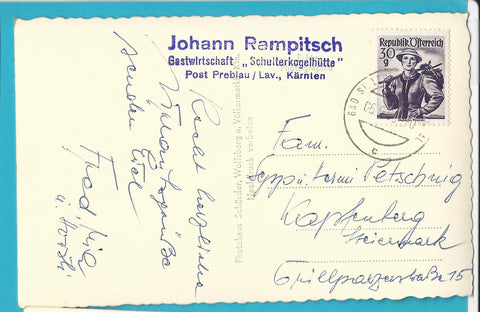 Johann Rampitsch
Gastwirtschaft „Schulterkogelhütte"
Post Preblau / Lav., Kärnten
Republik Österreich
30
g
BAD ST. L
Photohaus Schüssler, Wolfsberg u. Völkermarkt
Nachdruck verboten
Recht herzliche
Urlaubsgrüße
senden Euch
Fred, Mia
u.
Fam.
Sepp u. Hermi Petschnig
Kapfenberg
Steiermark
Grillparzerstraße 15